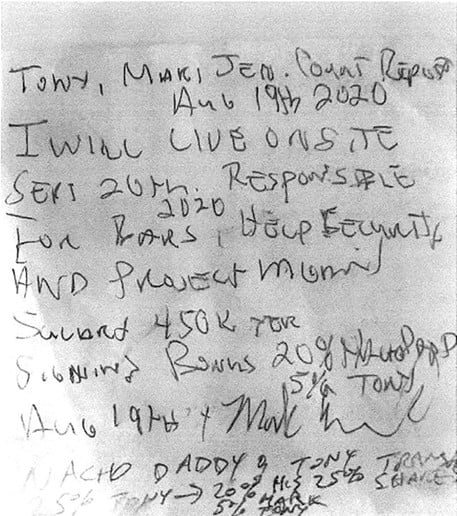 TONY, MARK, JEN. COURT REPORT
AUG 19th 2020
I WILL LIVE ONSITE
SEPT 20th. RESPONSIBLE
2020
FOR BARS, HELP SECURITY
AND PROJECT
450K
SIGNING BONUS 20% NACHO DADD
5% TONY
AUG 19th + Mark
NACHO DADDY & TONY TRANS
20% HIS 25% SHARES
25% TONY → 5% MARK
TONY